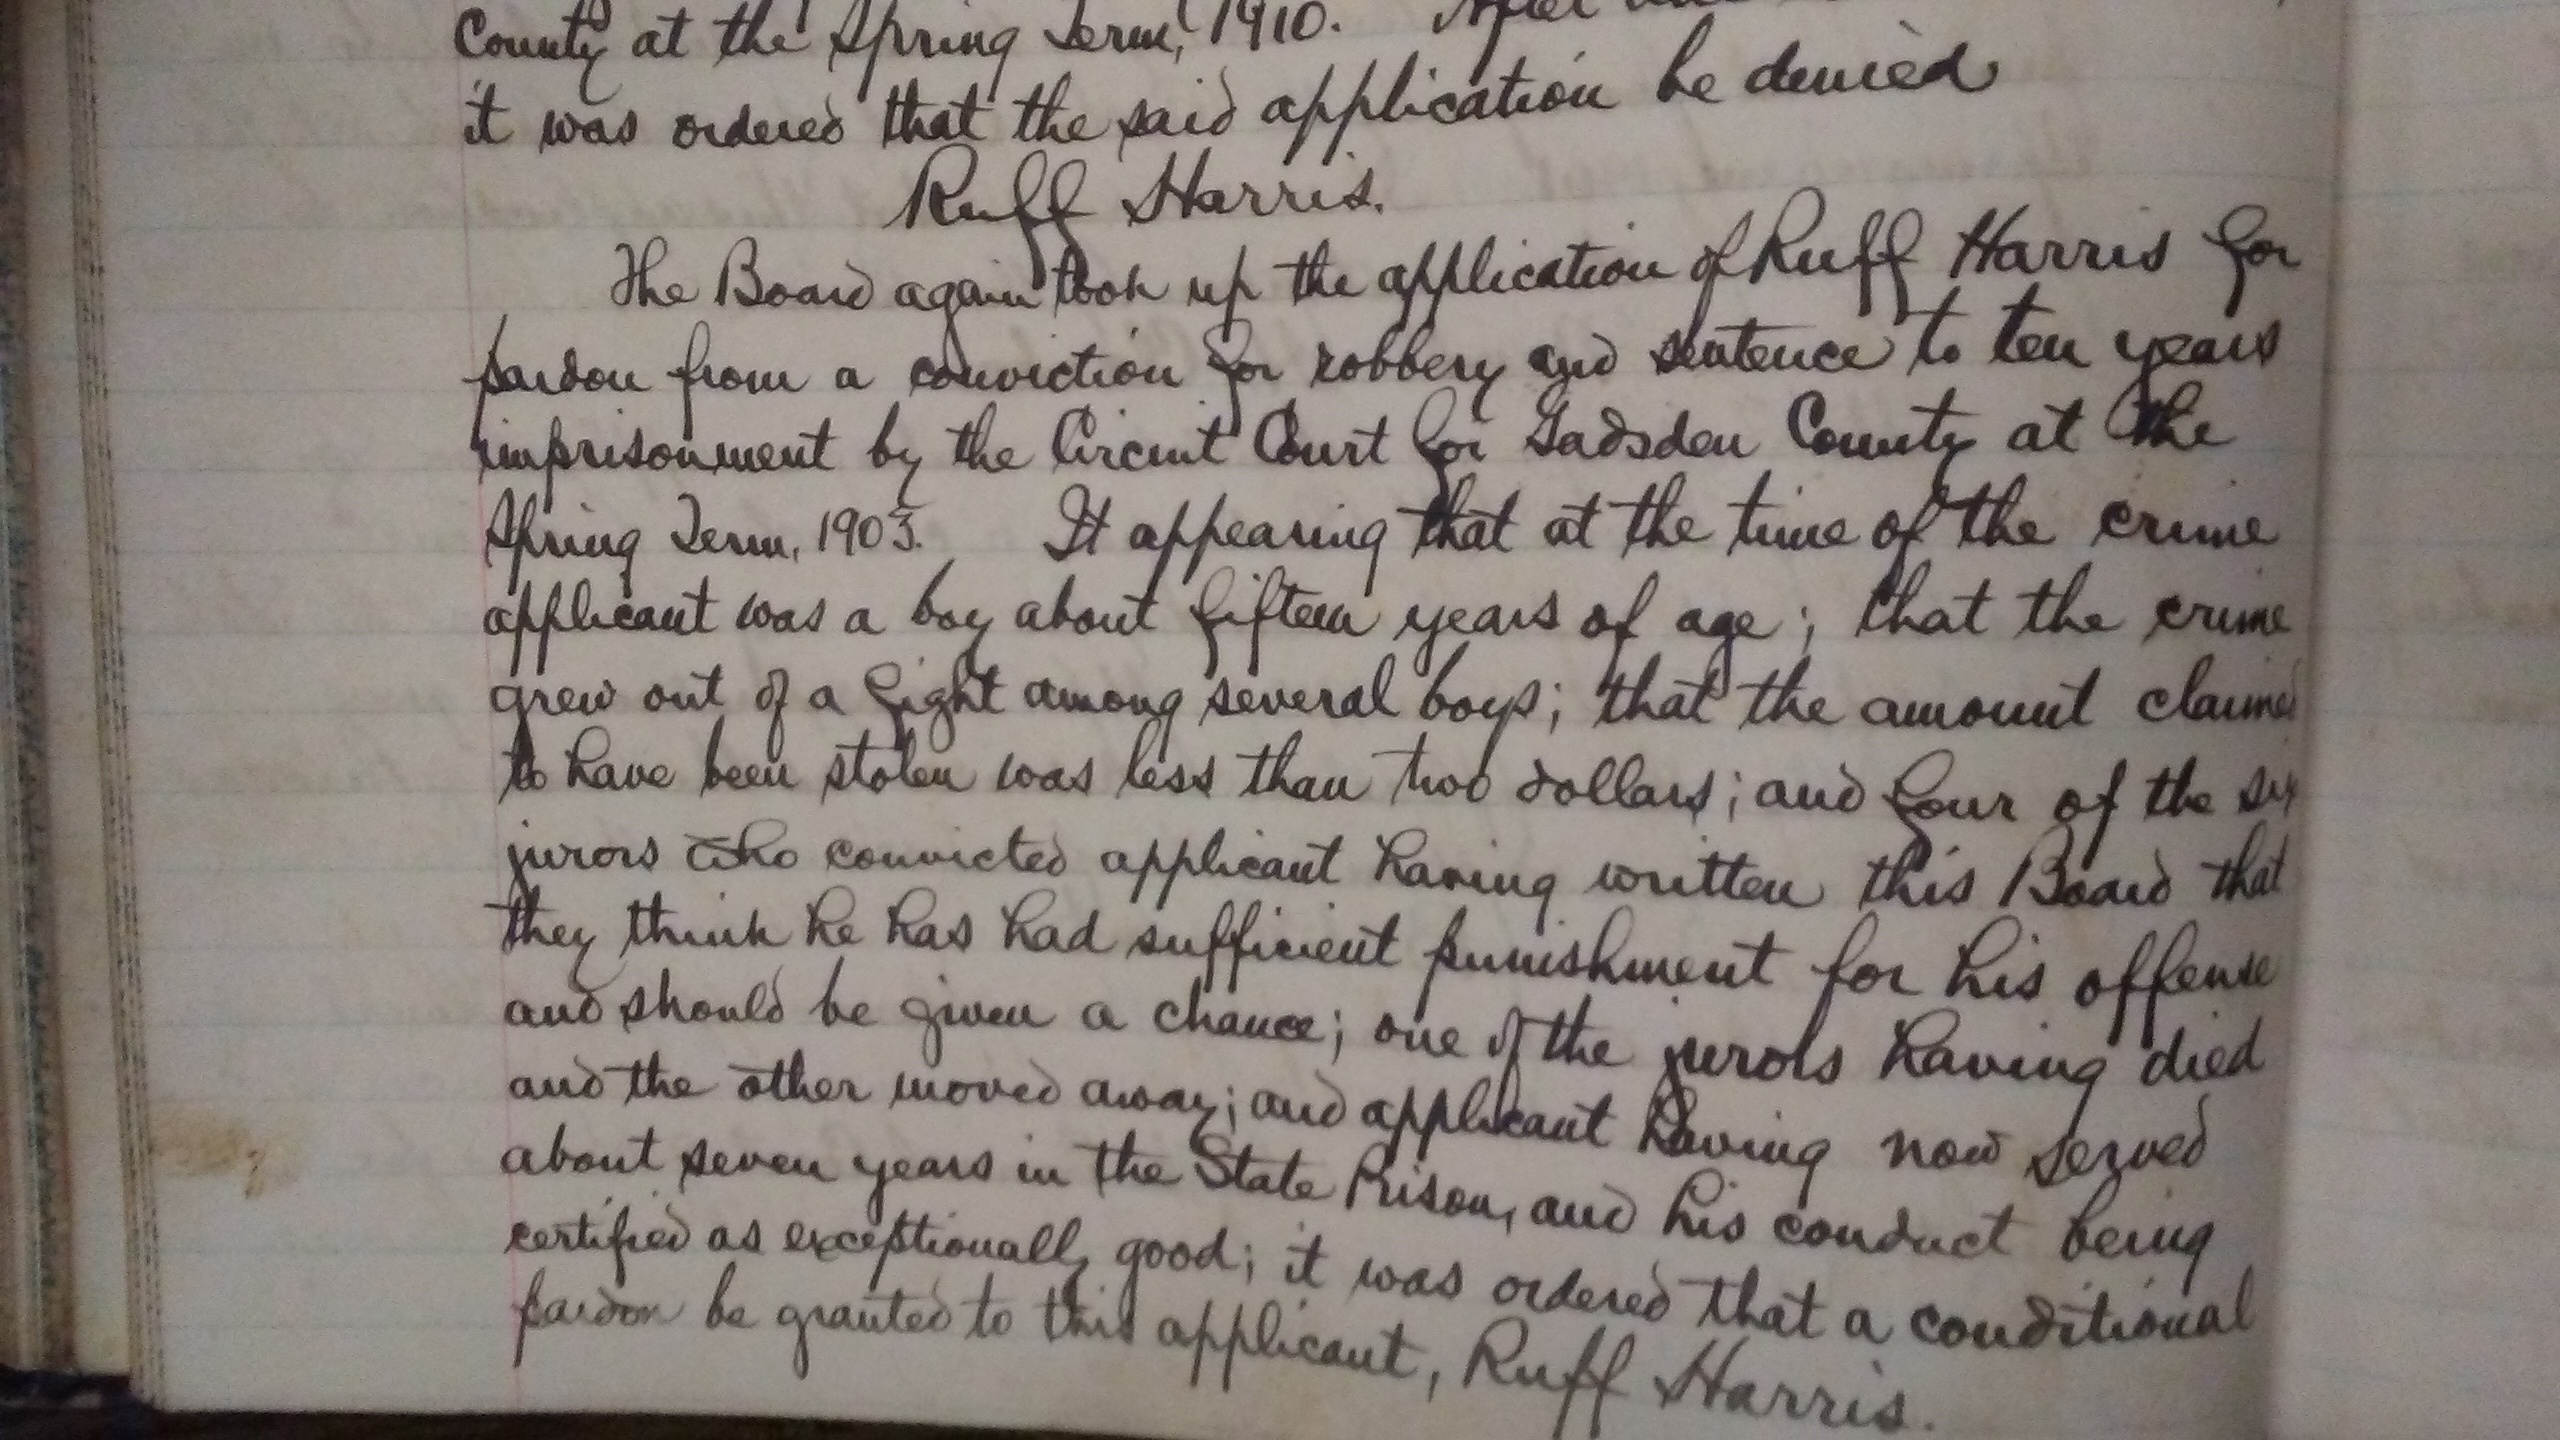 County at the Spring Term, 1910.
it was ordered that the said application be denied
Ruff Harris.
The Board again took up the application of Ruff Harris for
pardon from a conviction for robbery and sentence to ten years
imprisonment by the Circuit Court for Gadsden County at the
Spring Term, 1903. It appearing that at the time of the crime
applicant was a boy about fifteen years of age; that the crime
grew out of a fight among several boys; that the amount claimed
to have been stolen was less than two dollars; and four of the six
jurors who convicted applicant having written this Board that
they think he has had sufficient punishment for his offense
and should be given a chance; one of the jurors having died
and the other moved away; and applicant having now served
about seven years in the State Prison, and his conduct being
certified as exceptionally good; it was ordered that a conditional
pardon be granted to this applicant, Ruff Harris.